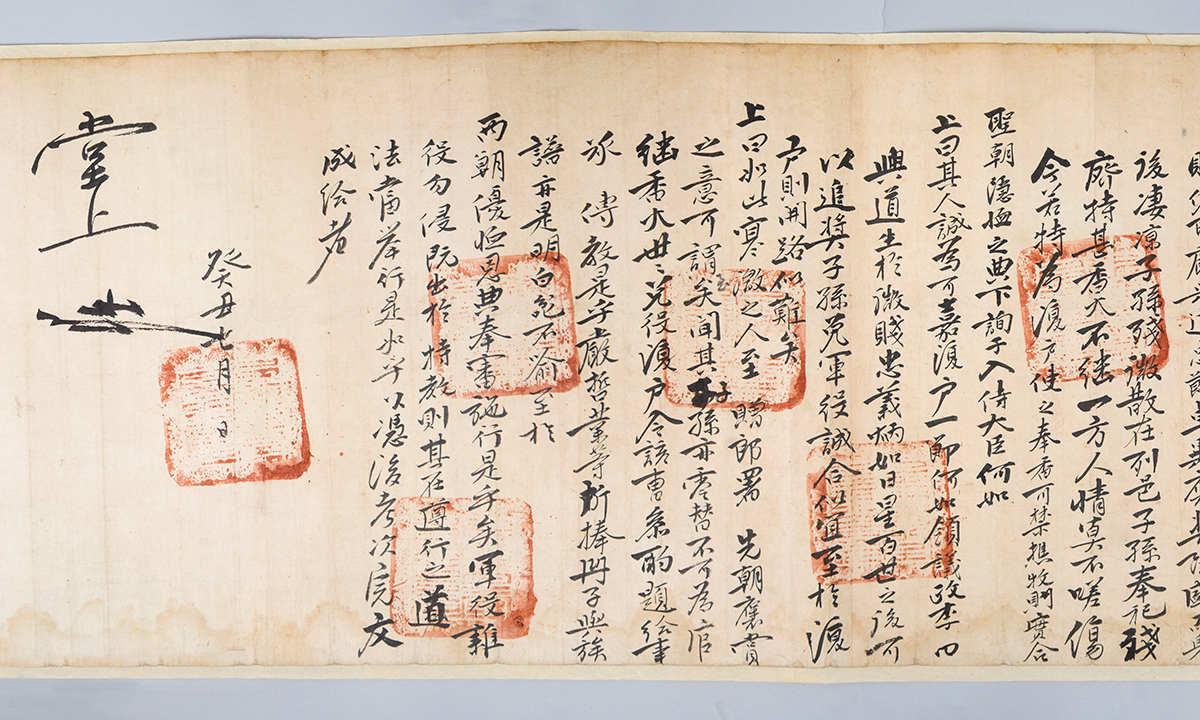 後凄凉子孫殘微散在列邑子孫奉祀殘
廢特甚香火不継一方人情莫不嗟傷
今若特為復戶使之奉香可禁樵牧則實合
聖朝隱恤之典下詢于入侍大臣何如
上曰其人誠為可嘉復戶一節何如領議政李曰
興道生於微賤忠義炳如日星百世之後可
以追奬子孫免軍役誠合似宜至於復
戶則開路似難矣
上曰如此寒微之人至 贈郎署 先朝褒賞
之意可謂矣聞其子孫亦零替不可為官
継香火世々免役復戶令該曹参酌題給事
承 傳教是乎 哲業等所捧冊子與族
譜亦是明白 不喩至於
両朝優恤恩典奉審施行是乎矣軍役雜
役勿侵既出於 特教則其在遵行之道
法當举行是如乎以憑後考次完文
成給者
癸丑七月 日
堂上